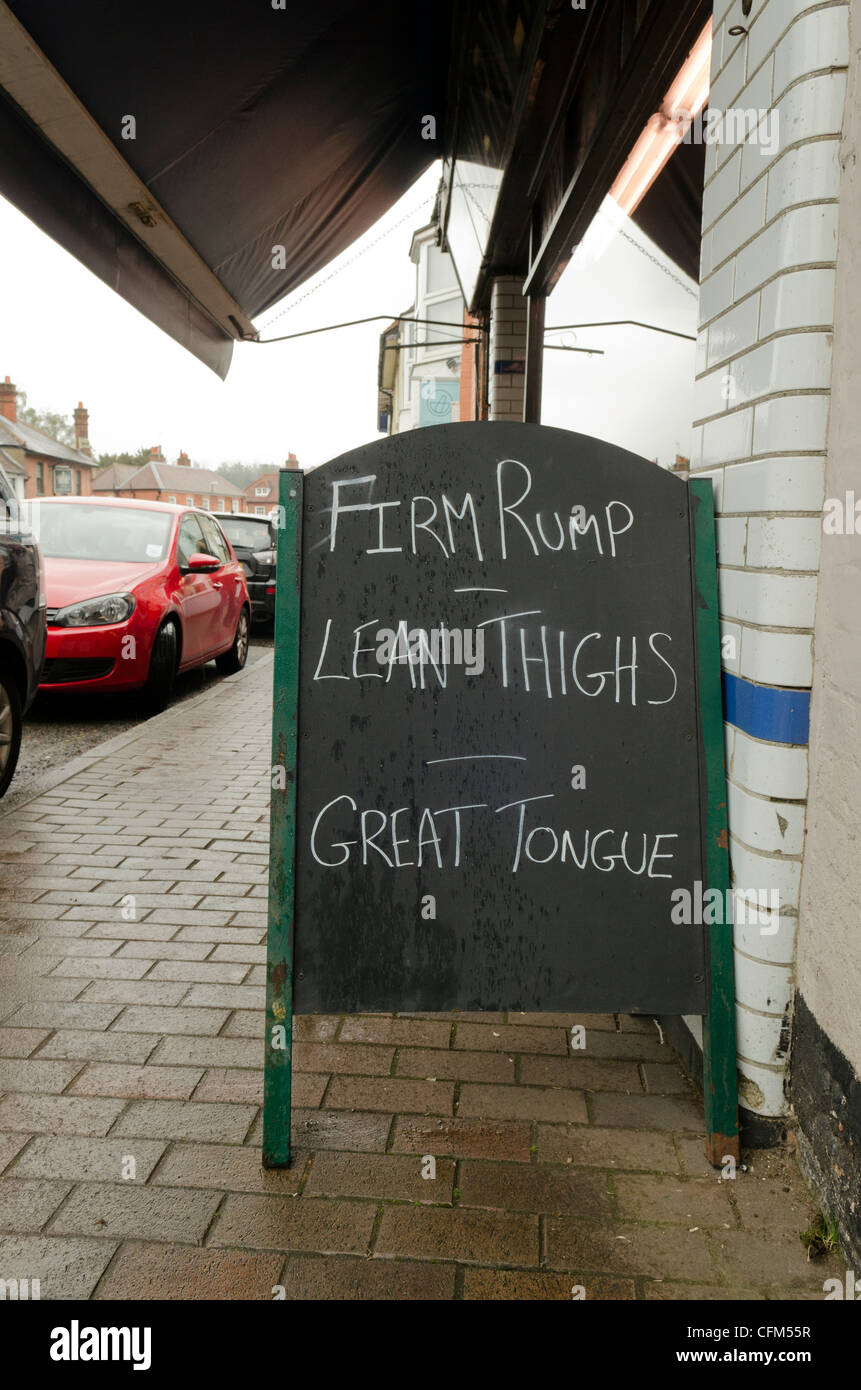 FIRM RUMP
–
LEAN THIGHS
–
GREAT TONGUE
alamy
Image ID: CFM55R
www.alamy.com